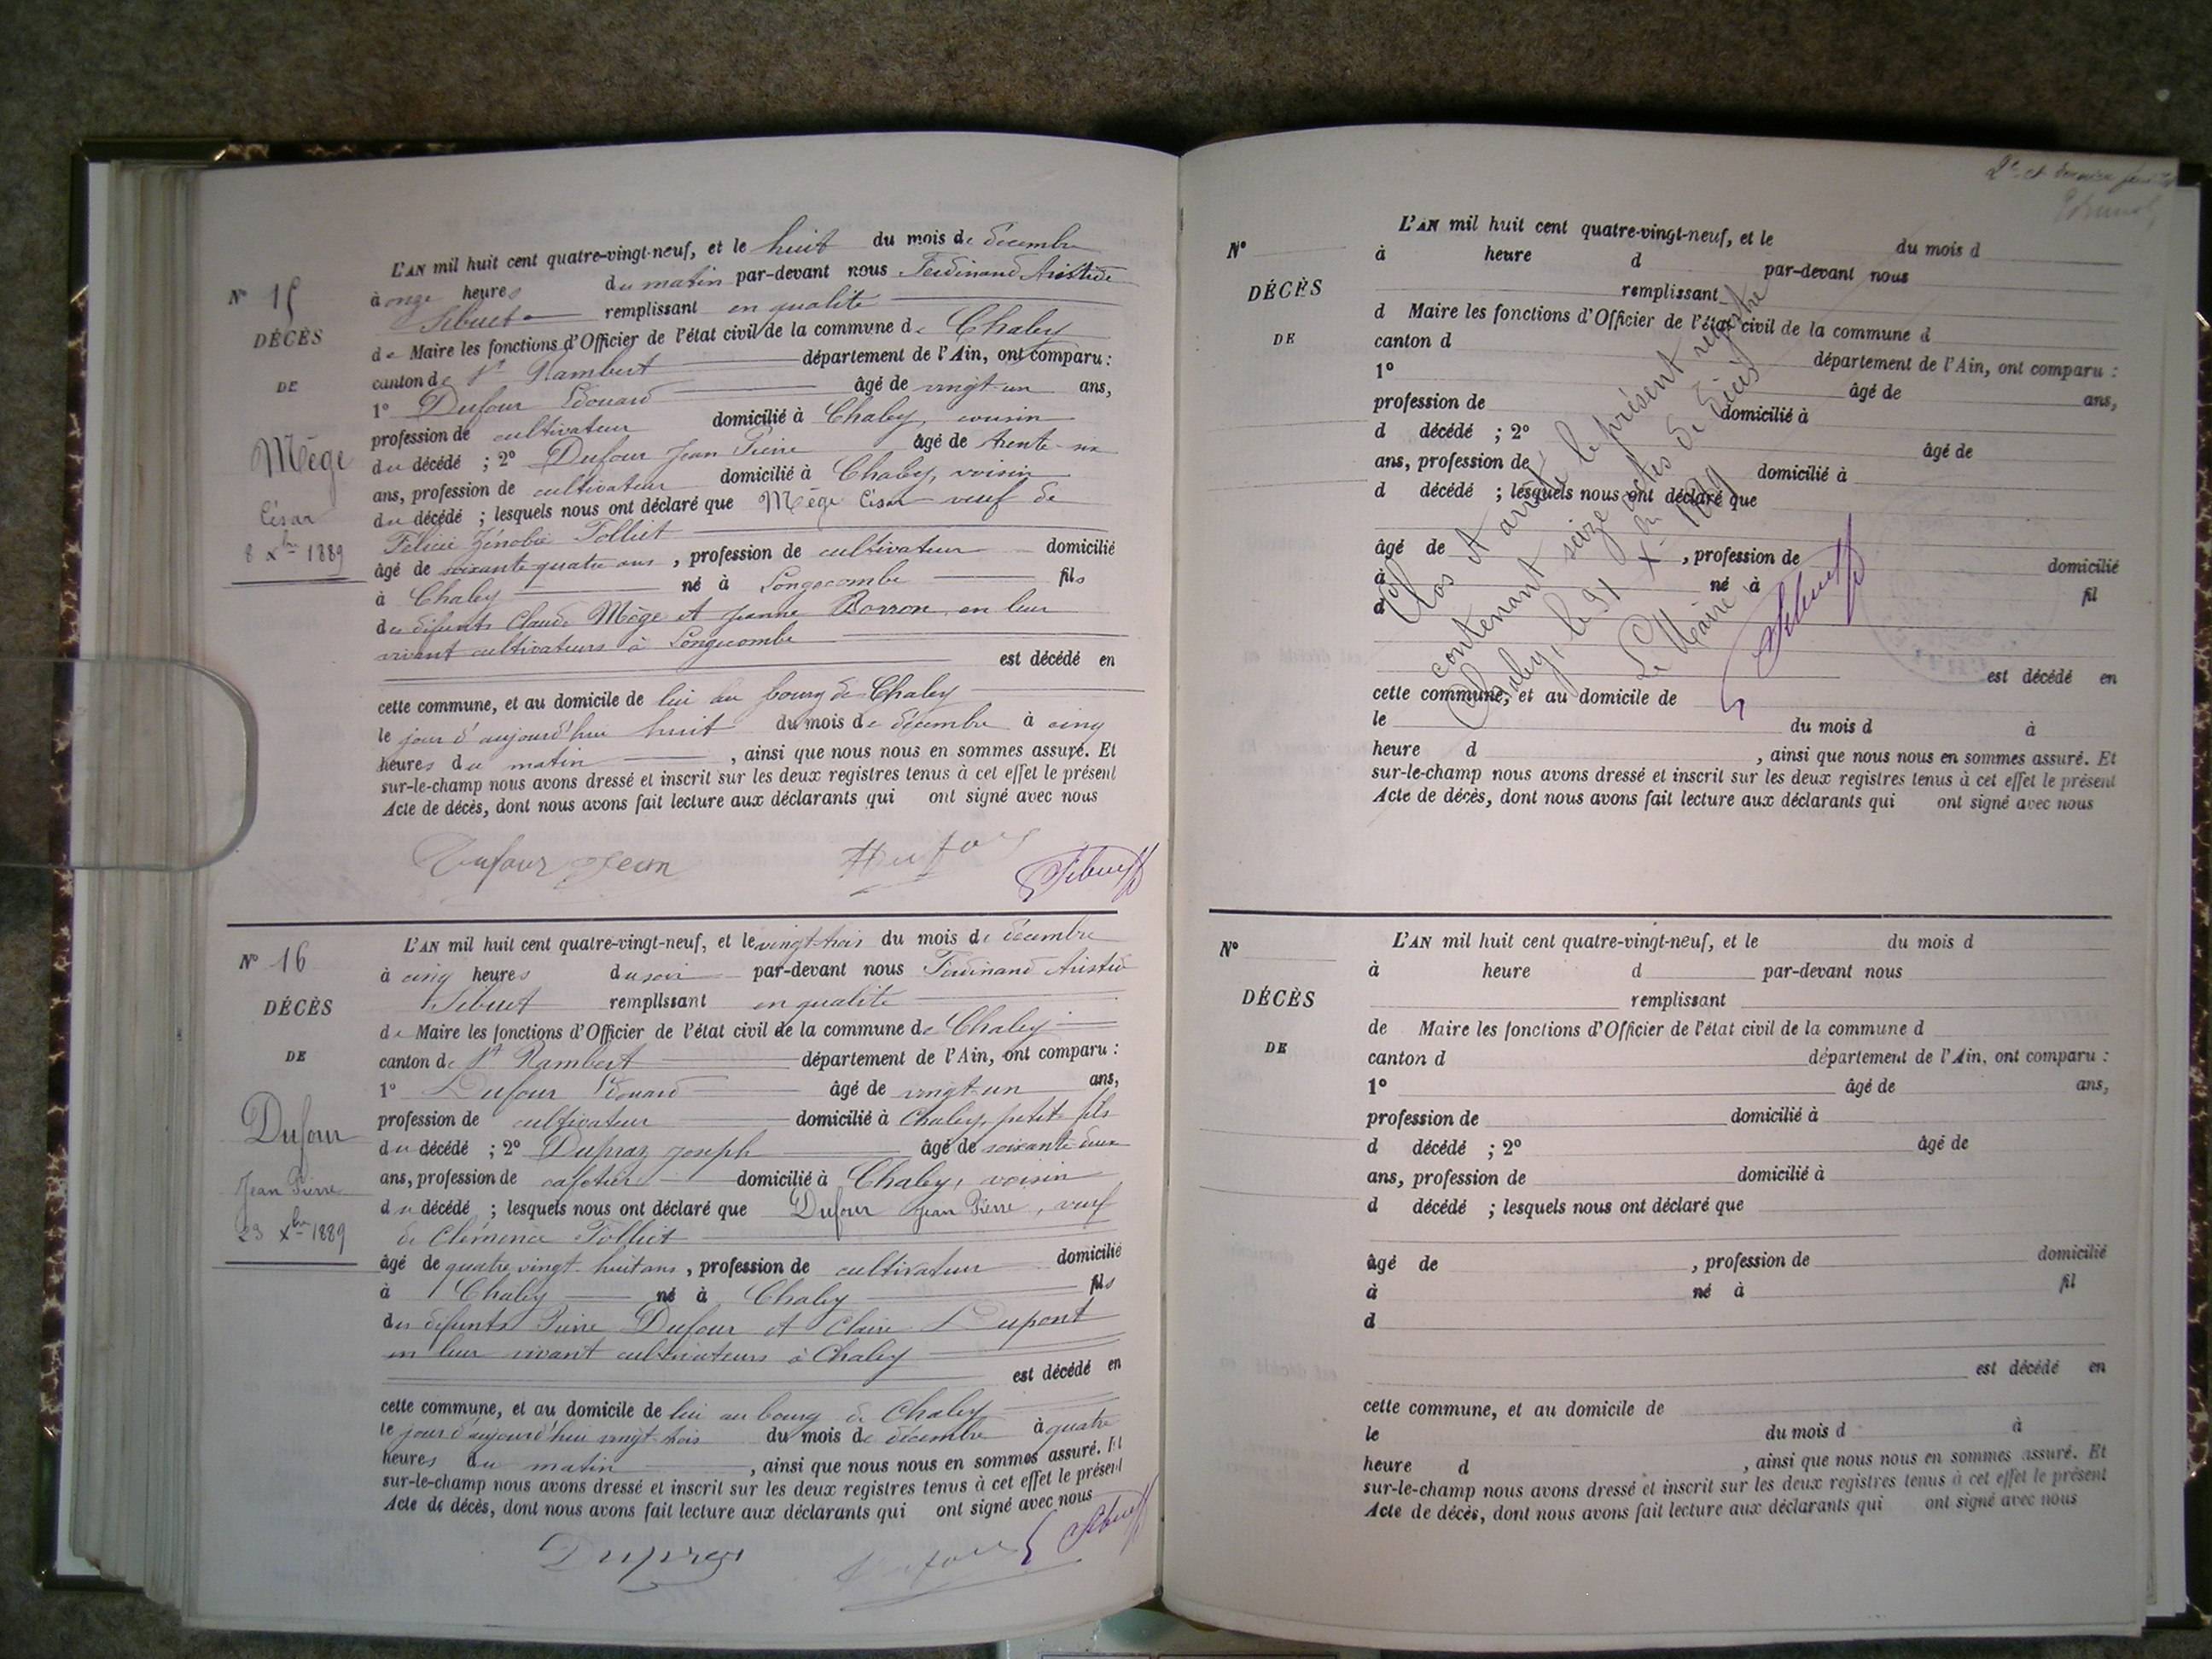 N° 15
DÉCÈS
DE
Mège
César
8 Xbre 1889
L'AN mil huit cent quatre-vingt-neuf, et le huit du mois de décembre
à onze heures du matin par-devant nous Ferdinand Aristide
Sibuet remplissant en qualité
de Maire les fonctions d'Officier de l'état civil de la commune de Chaley
canton de St Rambert département de l'Ain, ont comparu :
1° Dufour Edouard âgé de vingt-un ans,
profession de cultivateur domicilié à Chaley, cousin
du décédé ; 2° Dufour Jean Pierre âgé de trente-six
ans, profession de cultivateur domicilié à Chaley, voisin
du décédé ; lesquels nous ont déclaré que Mège César veuf de
Félicie Zénobie Tolliet
âgé de soixante quatre ans, profession de cultivateur domicilié
à Chaley né à Longecombe fils
des défunts Claude Mège et Jeanne Borron en leur
vivant cultivateurs à Longecombe
est décédé en
cette commune, et au domicile de lui au bourg de Chaley
le jour d'aujourd'hui huit du mois de décembre à cinq
heures du matin , ainsi que nous nous en sommes assuré. Et
sur-le-champ nous avons dressé et inscrit sur les deux registres tenus à cet effet le présent
Acte de décès, dont nous avons fait lecture aux déclarants qui ont signé avec nous
Dufour Jean Dufour Sibuet
N° 16
DÉCÈS
DE
Dufour
Jean Pierre
23 Xbre 1889
L'AN mil huit cent quatre-vingt-neuf, et le vingt-trois du mois de décembre
à cinq heures du soir par-devant nous Ferdinand Aristide
Sibuet remplissant en qualité
de Maire les fonctions d'Officier de l'état civil de la commune de Chaley
canton de St Rambert département de l'Ain, ont comparu :
1° Dufour Edouard âgé de vingt-un ans,
profession de cultivateur domicilié à Chaley, petit-fils
du décédé ; 2° Dupraz Joseph âgé de soixante-deux
ans, profession de cafetier domicilié à Chaley, voisin
du décédé ; lesquels nous ont déclaré que Dufour Jean Pierre, veuf
de Clémence Tolliet
âgé de quatre vingt-huit ans, profession de cultivateur domicilié
à Chaley né à Chaley fils
des défunts Pierre Dufour et Claire Dupont
en leur vivant cultivateurs à Chaley
est décédé en
cette commune, et au domicile de lui au bourg de Chaley
le jour d'aujourd'hui vingt-trois du mois de décembre à quatre
heures du matin , ainsi que nous nous en sommes assuré. Et
sur-le-champ nous avons dressé et inscrit sur les deux registres tenus à cet effet le présent
Acte de décès, dont nous avons fait lecture aux déclarants qui ont signé avec nous
Dupraz Dufour Sibuet
2e et dernier feuillet
N°
DÉCÈS
DE
L'AN mil huit cent quatre-vingt-neuf, et le du mois d
à heure d par-devant nous
remplissant
d Maire les fonctions d'Officier de l'état civil de la commune d
canton d département de l'Ain, ont comparu :
1° âgé de ans,
profession de domicilié à
d décédé ; 2° âgé de
ans, profession de domicilié à
d décédé ; lesquels nous ont déclaré que
âgé de , profession de domicilié
à né à fil
d
est décédé en
cette commune, et au domicile de
le du mois d à
heure d , ainsi que nous nous en sommes assuré. Et
sur-le-champ nous avons dressé et inscrit sur les deux registres tenus à cet effet le présent
Acte de décès, dont nous avons fait lecture aux déclarants qui ont signé avec nous
Clos et arrêté le présent registre
contenant seize actes de décès
Chaley, le 31 Xbre 1889
Le Maire,
Sibuet
N°
DÉCÈS
DE
L'AN mil huit cent quatre-vingt-neuf, et le du mois d
à heure d par-devant nous
remplissant
de Maire les fonctions d'Officier de l'état civil de la commune d
canton d département de l'Ain, ont comparu :
1° âgé de ans,
profession de domicilié à
d décédé ; 2° âgé de
ans, profession de domicilié à
d décédé ; lesquels nous ont déclaré que
âgé de , profession de domicilié
à né à fil
d
est décédé en
cette commune, et au domicile de
le du mois d à
heure d , ainsi que nous nous en sommes assuré. Et
sur-le-champ nous avons dressé et inscrit sur les deux registres tenus à cet effet le présent
Acte de décès, dont nous avons fait lecture aux déclarants qui ont signé avec nous